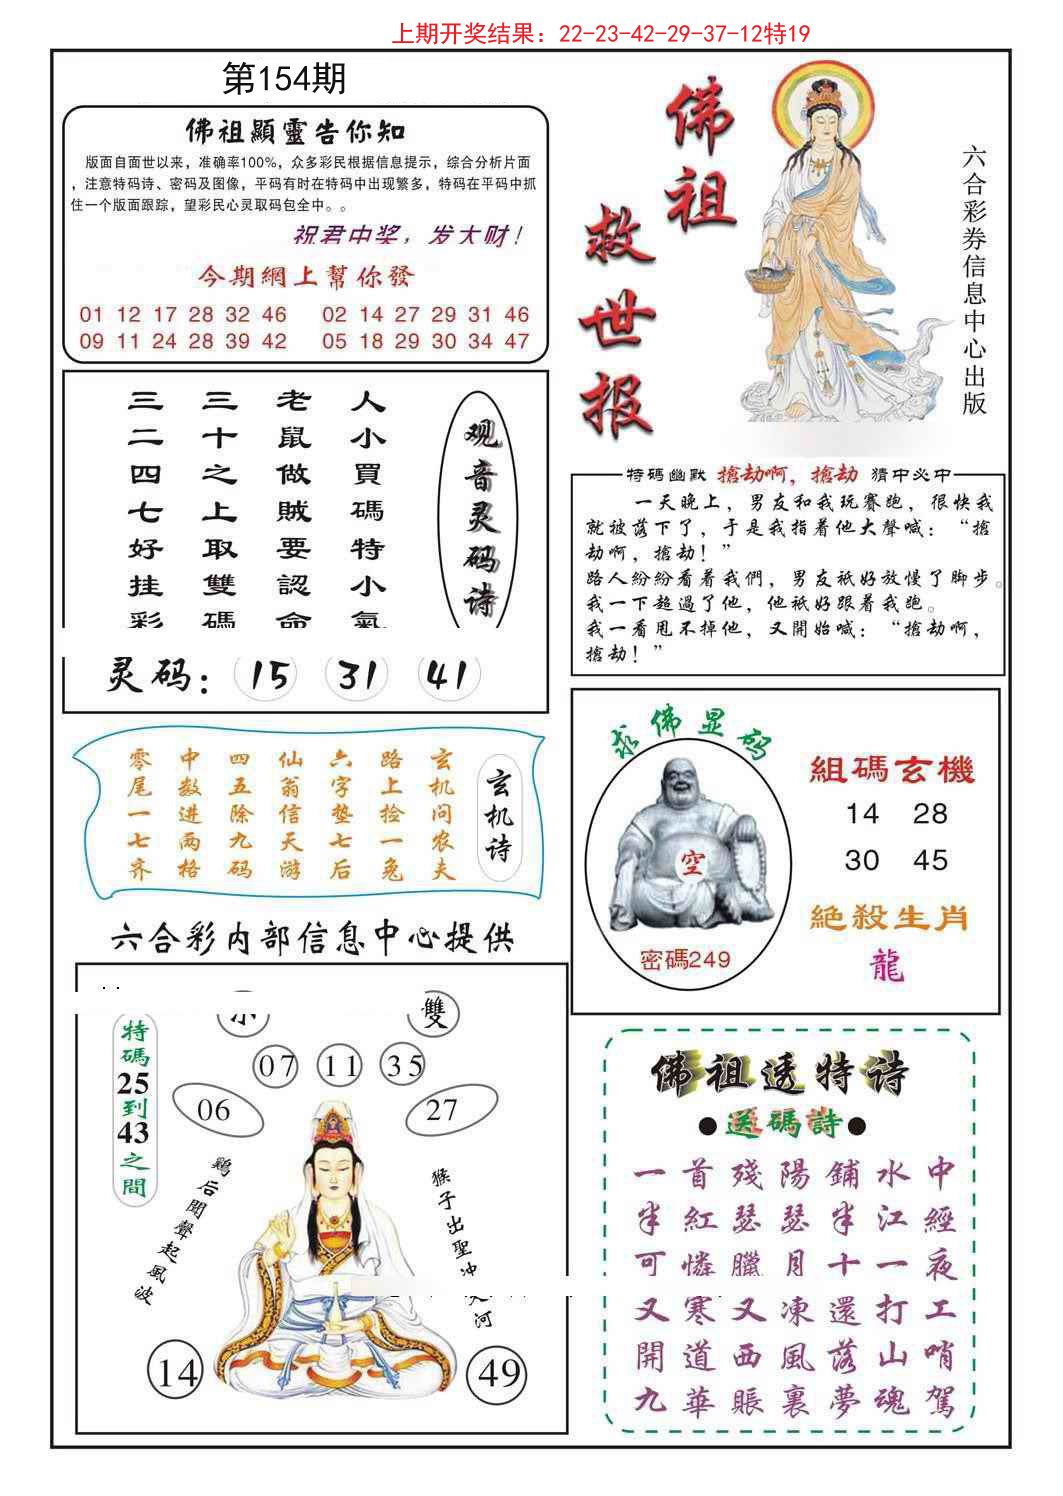 上期开奖结果：22-23-42-29-37-12特19
第154期
佛祖顯靈告你知
版面自面世以来，准确率100%，众多彩民根据信息提示，综合分析片面
，注意特码诗、密码及图像，平码有时在特码中出现繁多，特码在平码中抓
住一个版面跟踪，望彩民心灵取码包全中。。
祝君中奖，发大财！
今期網上幫你發
01 12 17 28 32 46 02 14 27 29 31 46
09 11 24 28 39 42 05 18 29 30 34 47
佛祖
救世报
六合彩券信息中心出版
观音灵码诗
人小買碼特小氣
老鼠做贼要認命
三十之上取雙碼
三二四七好挂彩
灵码：15 31 41
特码幽默 搶劫啊，搶劫 猜中必中
一天晚上，男友和我玩赛跑，很快我
就被落下了，于是我指着他大聲喊：“搶
劫啊，搶劫！”
路人紛紛看着我們，男友祇好放慢了脚步。
我一下超過了他，他祇好跟着我跑。
我一看甩不掉他，又開始喊：“搶劫啊，
搶劫！”
玄机诗
玄机问农夫
路上捡一兔
六字垫七后
仙翁信天游
四五除九码
中数进两格
零尾一七齐
求佛显码
空
密碼249
組碼玄機
14 28
30 45
絕殺生肖
龍
六合彩内部信息中心提供
特碼25到43之間
雙
07 11 35
06 27
鷄后聞聲起風波
猴子出聖冲天河
14 49
佛祖透特诗
●送碼詩●
一首殘陽鋪水中
半紅瑟瑟半江經
可憐臘月十一夜
又寒又凍還打工
開道西風落山哨
九華賬裏夢魂駕